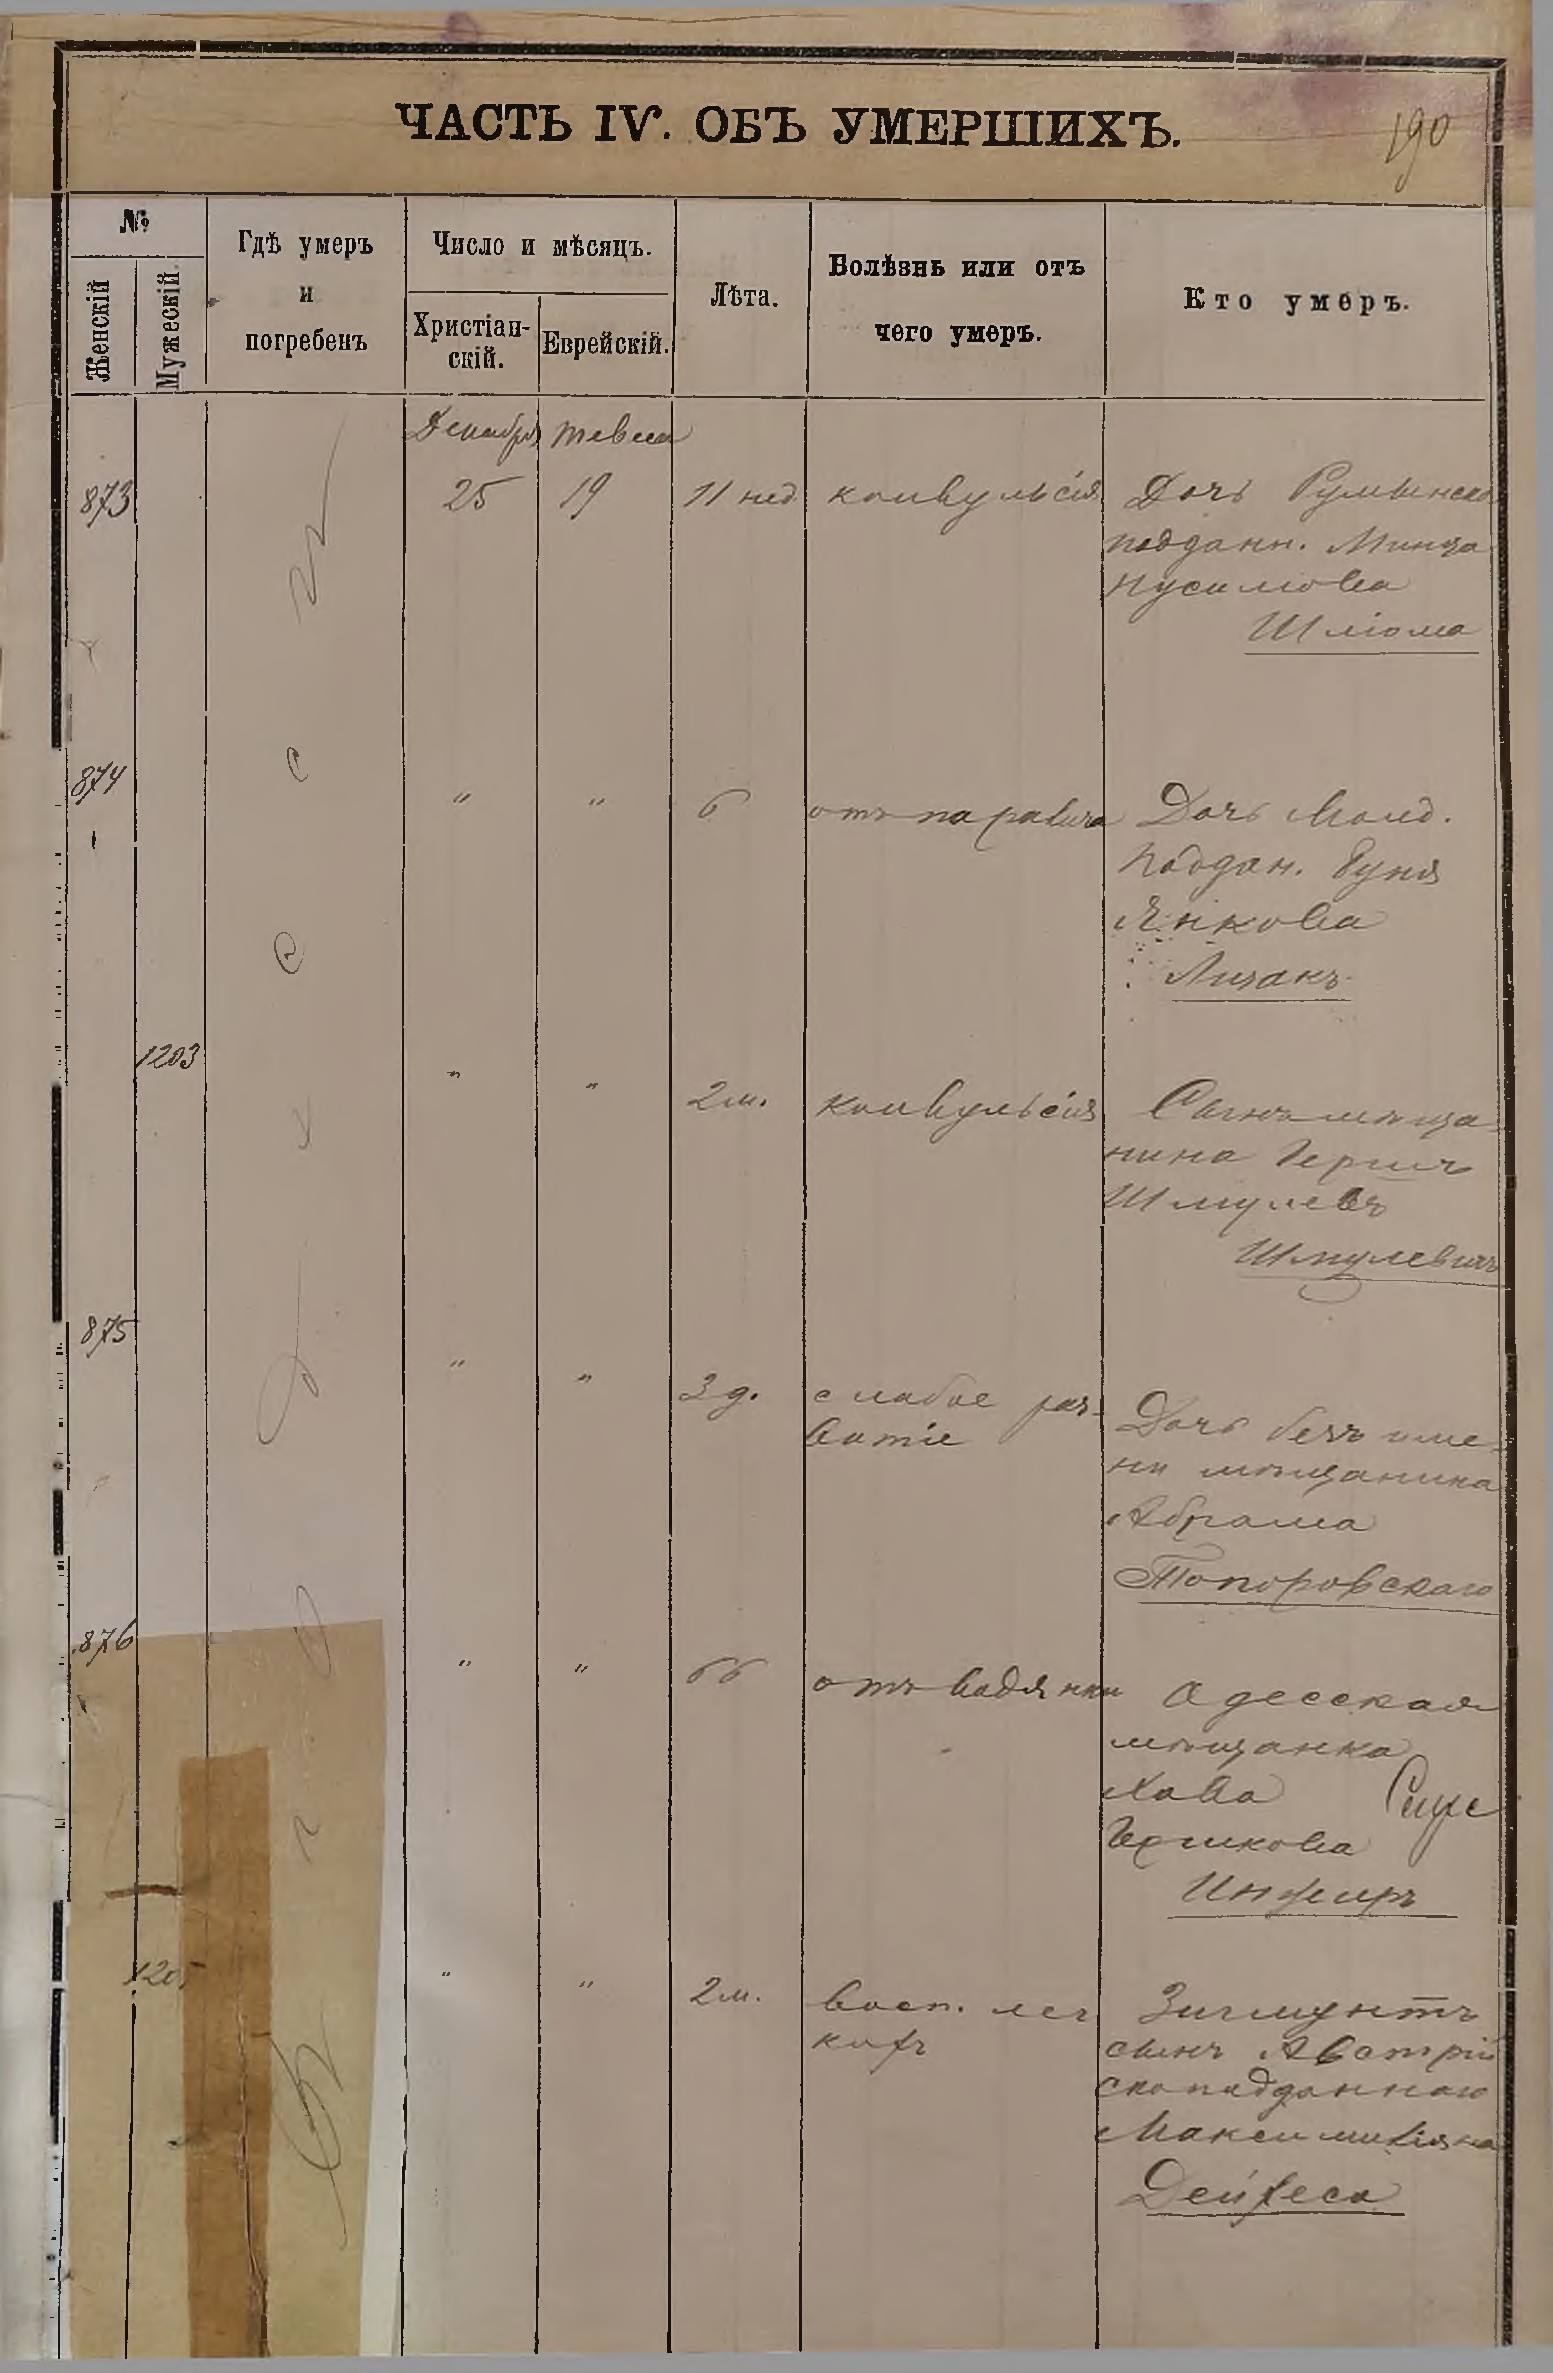 ЧАСТЬ IV. ОБЪ УМЕРШИХЪ.
190
№
Женскій
Мужескій
Гдѣ умеръ
и
погребенъ
Число и мѣсяцъ.
Христіан-
скій.
Еврейскій.
Лѣта.
Болѣзнь или отъ
чего умеръ.
Кто умеръ.
Декабря Тевеса
873 25 19 11 нед конвульсія Дочь Румынско
подданн. Минца
Нусимова
Шліома
874 " " 6 отъ паралича Дочь Молд.
поддан. Буня
Янкова
Лизакъ
1203 " " 2 м. конвульсія Сынъ мѣща
нина Гершъ
Шмулевъ
Шмулевичъ
875 " " 3 д. слабое раз-
витіе
Дочь безъ име-
ни мѣщанина
Абрама
Топоровскаго
876 " " 66 отъ водянки Одесская
мѣщанка
Хава
Гершкова
1205 " " 2 м. восп. лег
кихъ
Зигмунтъ
сынъ Австрій
скоподданнаго
Максимиліяна
Въ Одессѣ